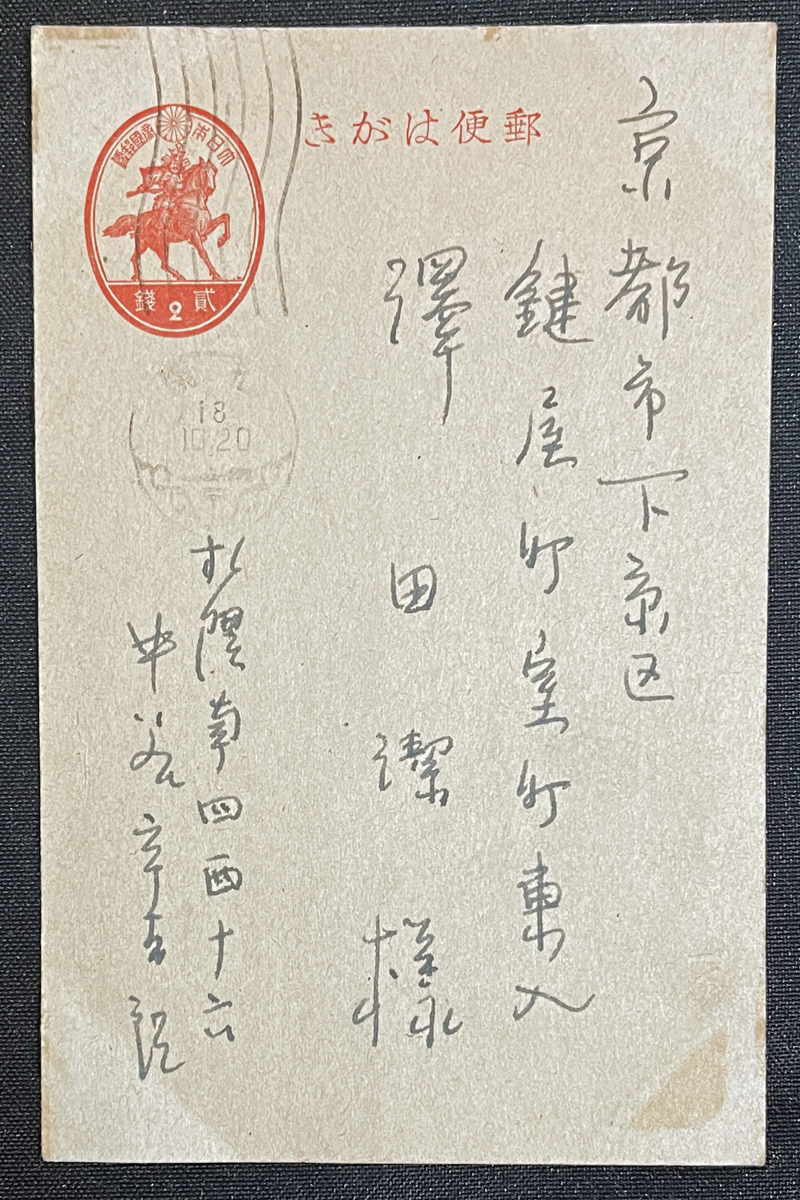 郵便はがき
大日本帝國郵便
貳錢
2
18
10.20
京都市下京区
鍵屋町室町東入
澤田潔様
札幌南四西十六